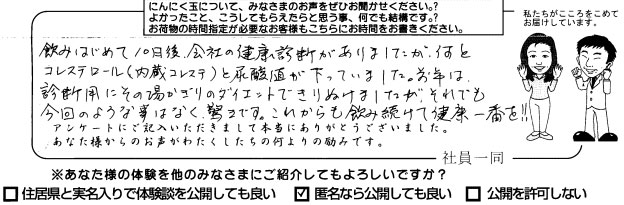 にんにく玉について、みなさまのお声をぜひお聞かせください。?
よかったこと、こうしてもらえたらと思う事、何でも結構です。?
お荷物の時間指定が必要なお客様もこちらにお時間をお書きください。
私たちがこころをこめて
お届けしています。
飲みはじめて10日後、会社の健康診断がありましたが、何と
コレステロール(内蔵コレステ)と尿酸値が下っていました。去年は、
診断用にその場かぎりのダイエットできりぬけましたが、それでも
今回のような事はなく、驚きです。これからも飲み続けて健康一番を!!
アンケートにご記入いただきまして本当にありがとうございました。
あなた様からのお声がわたくしたちの何よりの励みです。
社員一同
※あなた様の体験を他のみなさまにご紹介してもよろしいですか?
□ 住居県と実名入りで体験談を公開しても良い ☑ 匿名なら公開しても良い □ 公開を許可しない